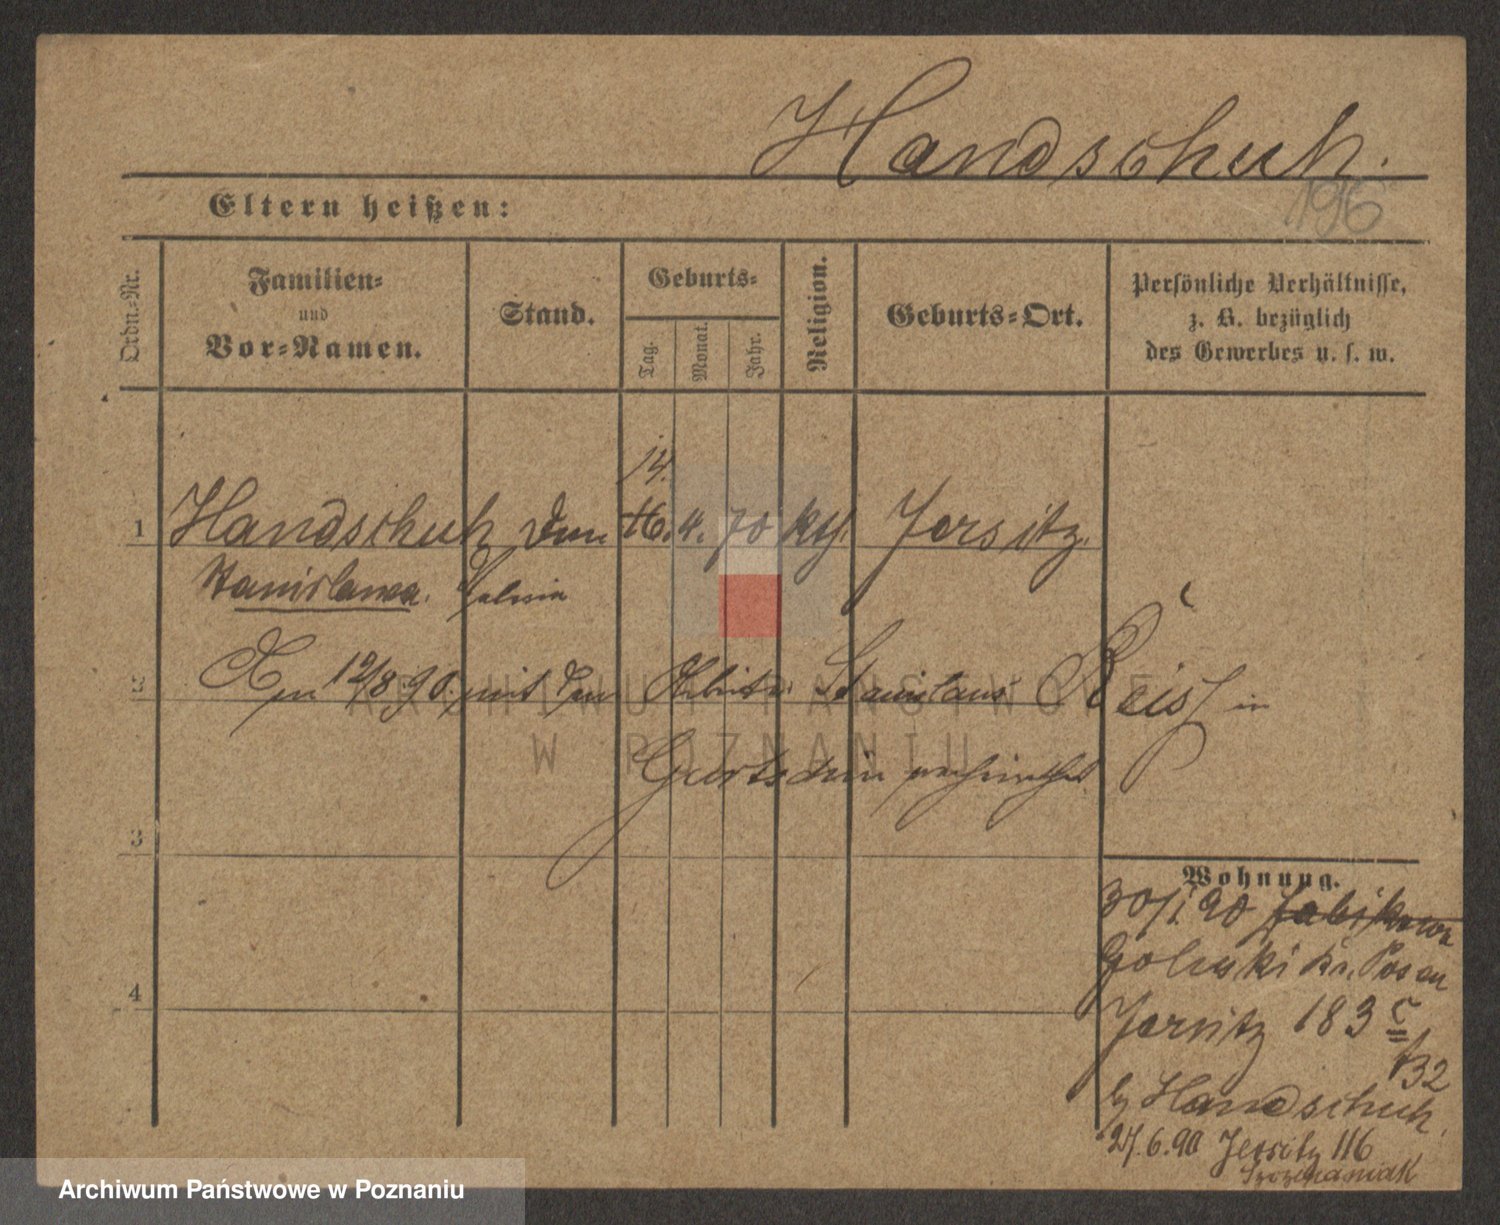 Handschuh.
196
Eltern heißen:
Ordn.-Nr.
Familien-
und
Vor-Namen.
Stand.
Geburts-
Tag.
Monat.
Jahr.
Religion.
Geburts-Ort.
Persönliche Verhältnisse,
z. B. bezüglich
des Gewerbes u. s. w.
14.
1 Handschuh 16. 4. 70 kth. Jersitz.
Stanislawa. Valeria
2 Am 12/8 90. mit dem Arbeiter Stanislaus Reis in
Gurtschin verheirathet.
3
4
Wohnung.
30/1. 90 Zabikowo
Golenski Kr. Posen
Jersitz 183 c
B2
by Handschuh.
27.6.90 Jersitz 116
Szczepaniak
ARCHIWUM PAŃSTWOWE
W POZNANIU
Archiwum Państwowe w Poznaniu